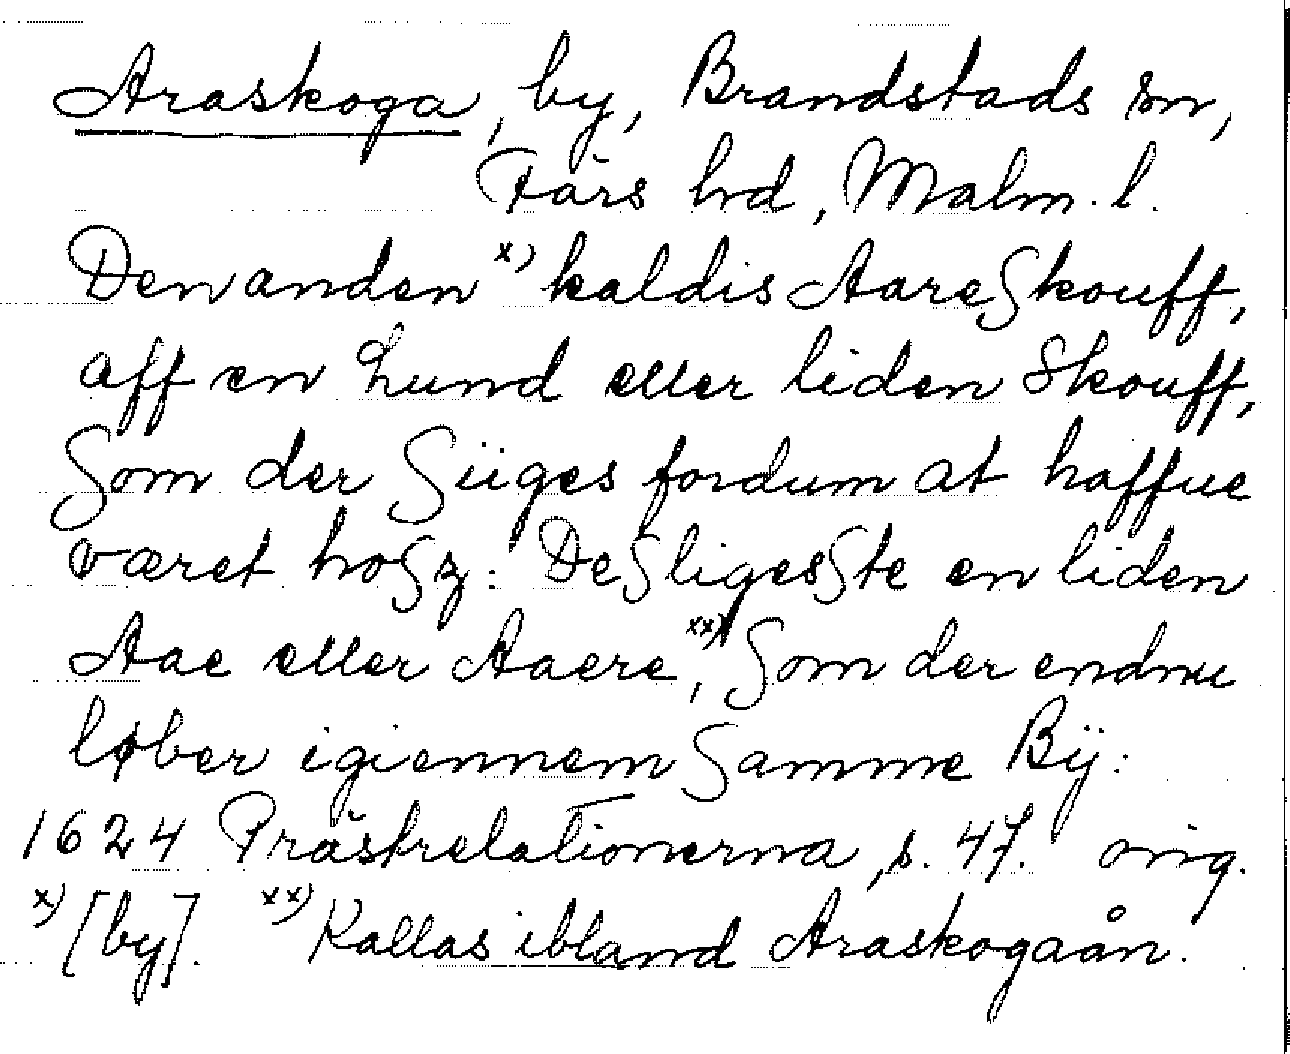 Araskoga, by, Brandstads sn,
Färs hd, Malm. l.
Den anden x) kaldis Aareskouff,
aff en Lund eller liden Skouff,
Som der Siiges fordum at haffue
været hosz: Desligesste en liden
Aae eller Aaere, xx) Som der endnu
løber igiennem Samme Bÿ:
1624 Prästrelationerna, s. 47. orig.
x) [by]. xx) Kallas ibland Araskogaån.